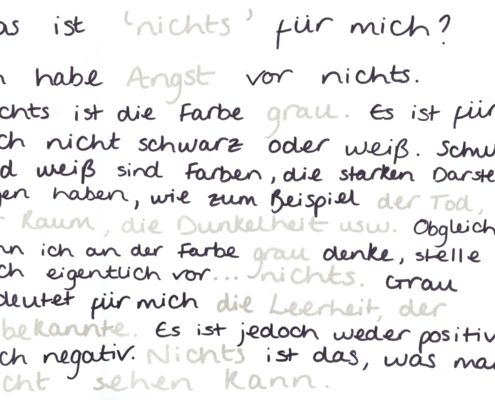 as ist 'nichts' für mich?
h habe Angst vor nichts.
chts ist die Farbe grau. Es ist für
ch nicht schwarz oder weiß. Schw
d weiß sind Farben, die starken Darste
gen haben, wie zum Beispiel der Tod,
r Raum, die Dunkelheit usw. Obgleich
nn ich an der Farbe grau denke, stelle
ch eigentlich vor... nichts. Grau
deutet für mich die Leerheit, der
bekannte. Es ist jedoch weder positiv
ch negativ. Nichts ist das, was man
cht sehen kann.